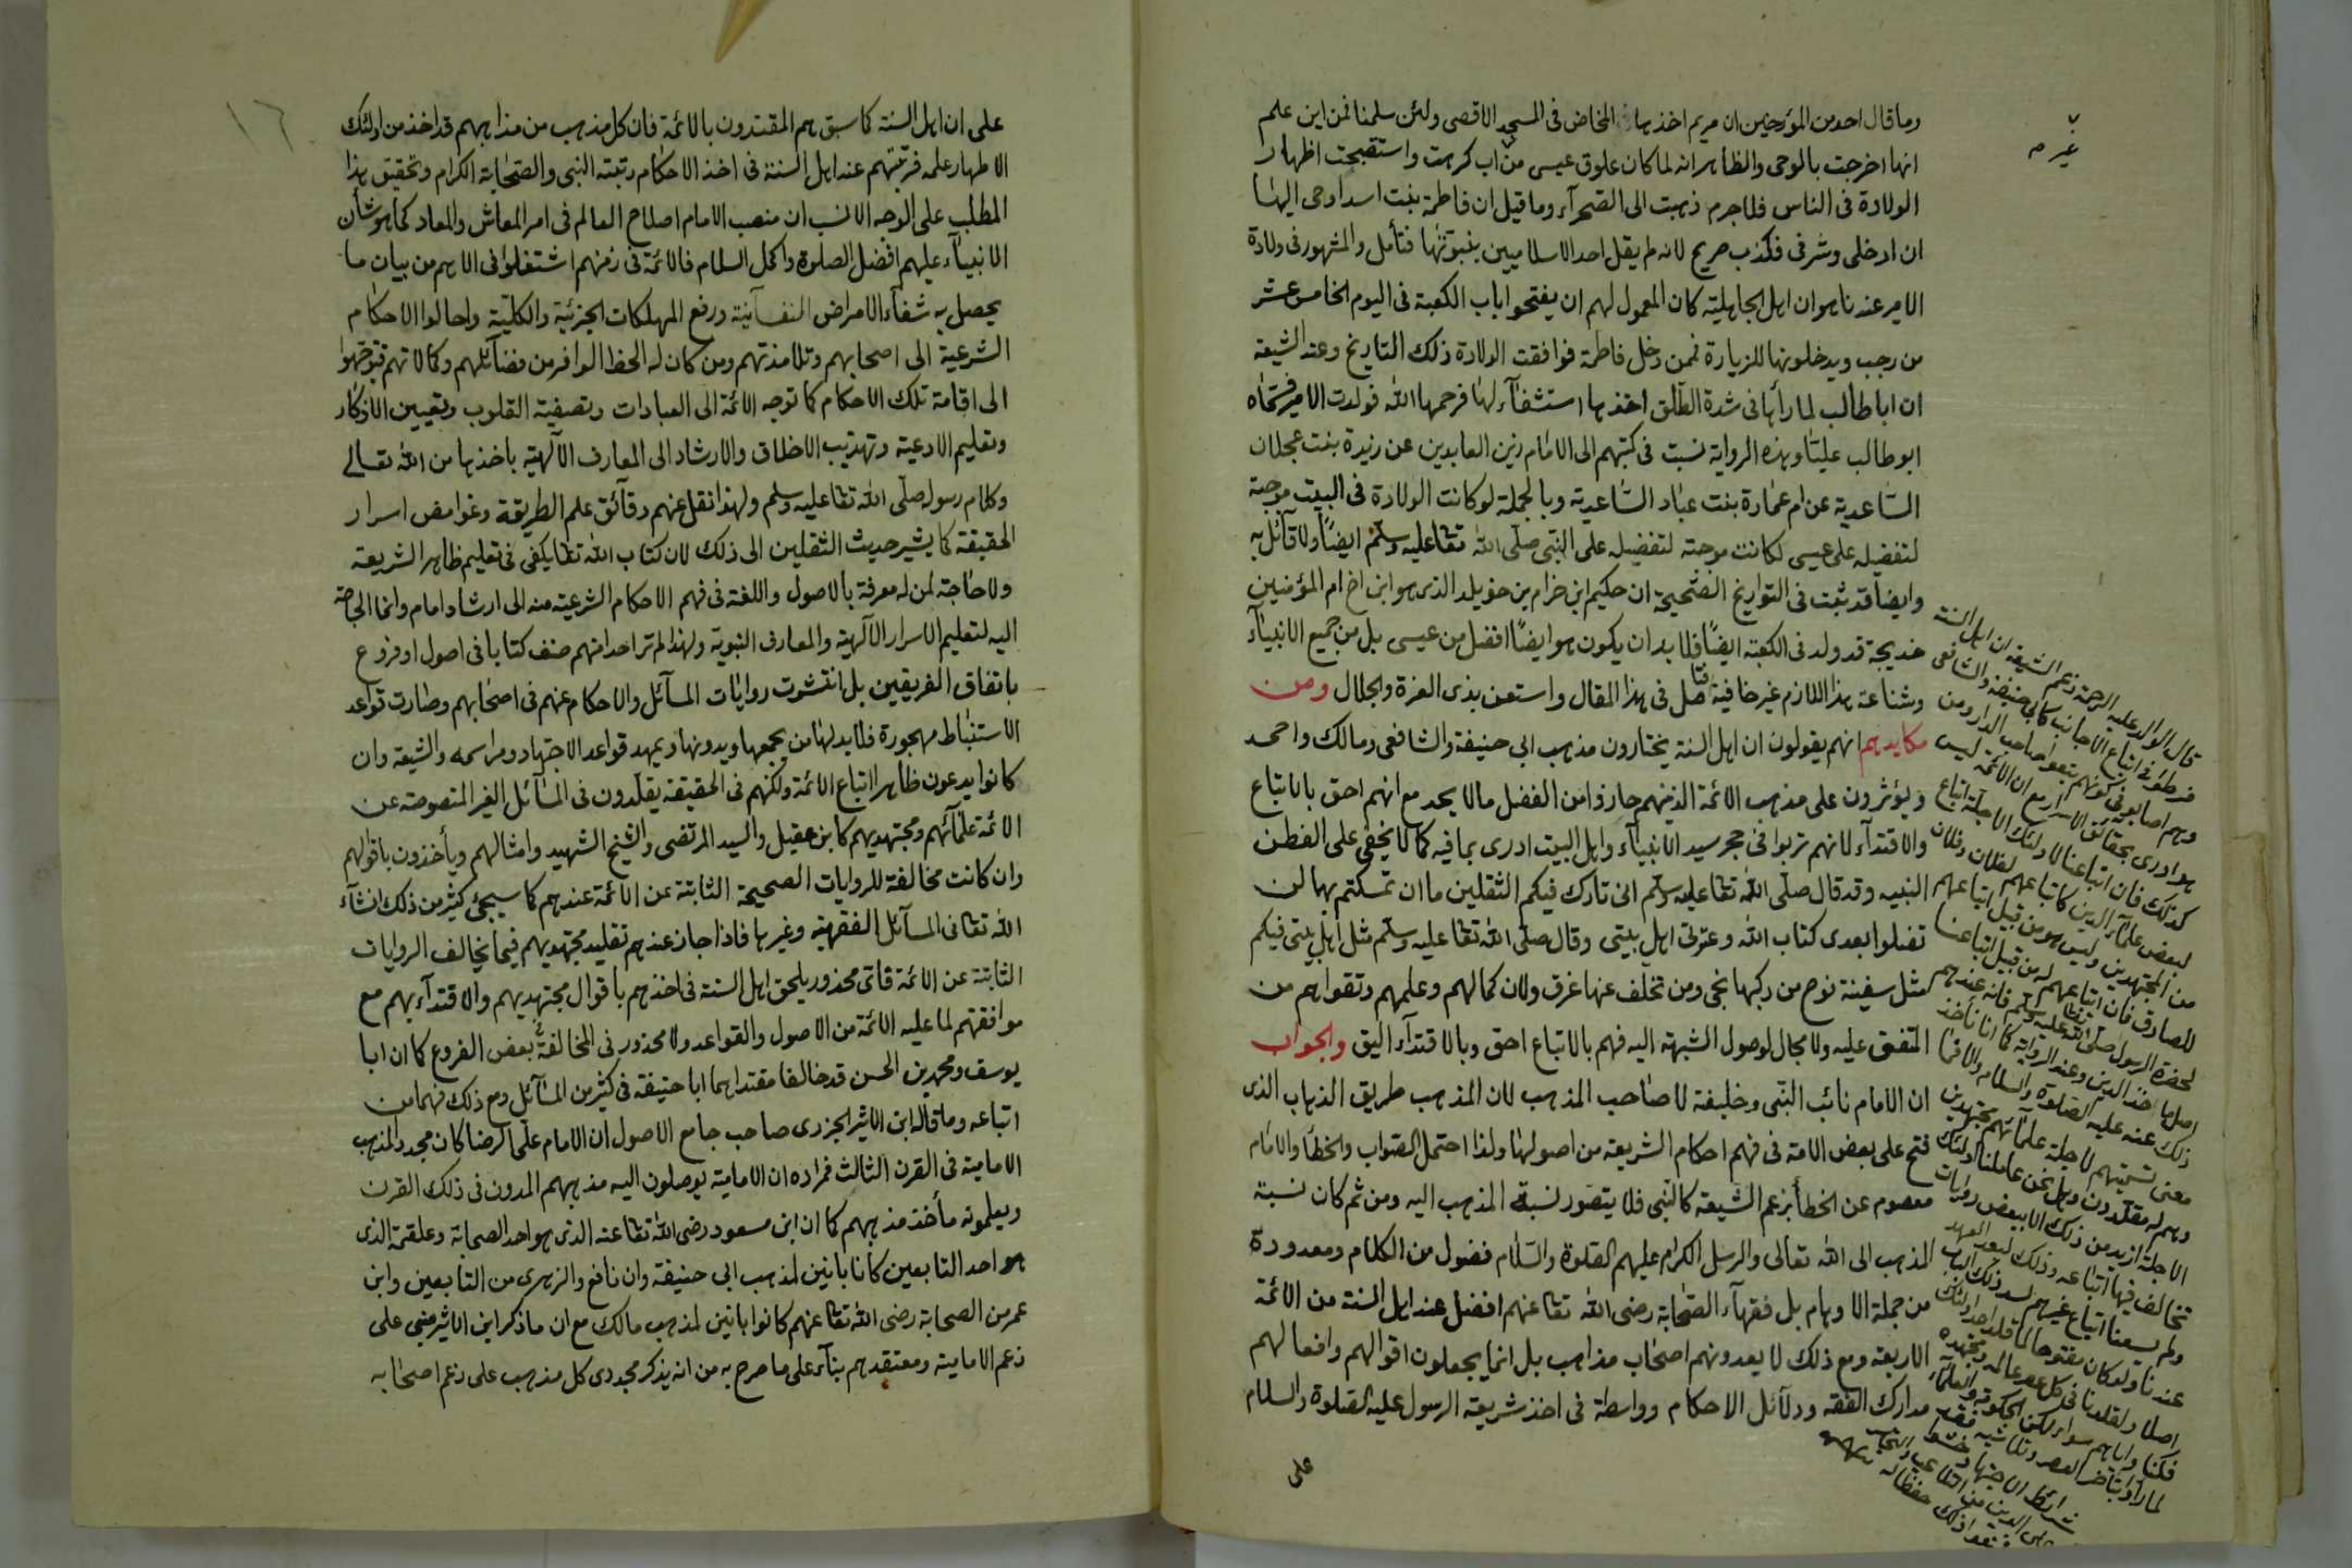 وما قال احد من المؤرخين ان مريم اخذها المخاض فى المسجد الاقصى ولئن سلمنا فمن اين علم
انها اخرجت بالوحى والظاهر انه لما كان علوق عيسى من اب كرهت واستقبحت اظهار
غير
الولادة فى الناس فلا جرم ذهبت الى الصحرآء وما قيل ان فاطمة بنت اسد اوحى اليها
ان ادخلى وشرفى فكذب صريح لانه لم يقل احد الاسلاميين بنبوتها فتأمل والمشهور فى ولادة
الامير عندنا هو ان اهل الجاهلية كان المعمول لهم ان يفتحوا باب الكعبة فى اليوم الخامس عشر
من رجب ويدخلونها للزيارة فمن دخل فاطمة فوافقت الولادة ذلك التاريخ وعند الشيعة
ان ابا طالب لما رأها فى شدة الطلق اخذها استشفآء لها فرحمها الله فولدت الامير فسماه
ابو طالب عليا وهذه الرواية نسبت فى كتبهم الى الامام زين العابدين عن زيدة بنت عجلان
الساعدية عن ام عمارة بنت عباد الساعدية وبالجملة لو كانت الولادة فى البيت موجبة
لتفضيله على عيسى لكانت موجبة لتفضيله على النبى صلى الله تعا عليه وسلم ايضا ولا قآئل به
وايضا قد ثبت فى التواريخ الصحيحة ان حكيم ابن خزام بن خويلد الذى هو ابن اخ ام المؤمنين
خديجة قد ولد فى الكعبة ايضًا فلا بد ان يكون هو ايضًا افضل من عيسى بل من جميع الانبيآء
وشناعة هذا اللازم غير خافية فتأمل فى هذا المقال واستعن بذى العزة والجلال ومن
مكايدهم انهم يقولون ان اهل السنة يختارون مذهب ابى حنيفة والشافعى ومالك واحمد
ويؤثرون على مذهب الائمة الذينهم حازوا من الفضل ما لا يحد مع انهم احق بالاتباع
والاقتدآء لانهم تربوا فى حجر سيد الانبيآء واهل البيت ادرى بما فيه كما لا يخفى على الفطن
النبيه وقد قال صلى الله تعا عليه وسلم انى تارك فيكم الثقلين ما ان تمسكتم بهما لن
تضلوا بعدى كتاب الله وعترتى اهل بيتى وقال صلى الله تعا عليه وسلم مثل اهل بيتى فيكم
مثل سفينة نوح من ركبها نجى ومن تخلف عنها غرق ولان كمالهم وعلمهم وتقواهم من
المتفق عليه ولا مجال لوصول الشبهة اليه فهم بالاتباع احق وبالاقتدآء اليق والجواب
ان الامام نائب النبى وخليفة لا صاحب المذهب لان المذهب طريق الذهاب الذى
فتح على بعض الامة فى فهم احكام الشريعة من اصولها ولذا احتمل الصواب والخطأ والامام
معصوم عن الخطأ بزعم الشيعة كالنبى فلا يتصور نسبة المذهب اليه ومن ثم كان نسبة
المذهب الى الله تعالى والرسل الكرام عليهم الصلوة والسلام فضول من الكلام ومعدودة
من جملة الاوهام بل فقهآء الصحابة رضى الله تعا عنهم افضل عند اهل السنة من الائمة
الاربعة ومع ذلك لا يعدونهم اصحاب مذاهب بل انما يجعلون اقوالهم وافعالهم
مدارك الفقه ودلآئل الاحكام وواسطة فى اخذ شريعة الرسول عليه الصلوة والسلام
على
قال الوالد عليه الرحمة زعم الشيعة ان اهل السنة
فرطوا فى اتباع الاجانب كابى حنيفة والشافعى
وهم اصابوا فى كونهم تبعوا صاحب الدار ومن
هو ادرى بحقائق الاسرار مع ان الائمة ليس
كذلك فان اتباعنا لاولئك الاجلة اتباع
لبعض علمآء الدين كاتباعهم لفلان وفلان
من المجتهدين وليس هو من قبيل اتباعهم
للصادق فان اتباعهم له من قبيل اتباعنا
لحضرة الرسول صلى الله تعا عليه وسلم فانه عندهم
اصل اخذ الدين وعند الرواية كما انا نأخذ
ذلك عنه عليه الصلوة والسلام والا فما
معنى تسميتهم لاجلة علمآئهم مجتهدين
وهم له مقلدون وهل نحن عاملنا اولئك
الاجلة ازيد من ذلك الا ببعض روايات
تخالف فيها اتباعه وذلك لبعد العهد
ولم يسعنا اتباع غيرهم لسد ذلك الباب
عندنا ولو كان مفتوحا لما قلد احد اولئك
اصلا ولقلدنا فى كل عصر عالمه ومجتهده
فكنا واياهم سواء لكن
لما رأوا تأخر العصر
شرائط الاجتهاد
الدين من التلاعب
ذلك حفظا له
١٦
على ان اهل السنة كما سبق هم المقتدون بالائمة فان كل مذهب من مذاهبهم قد اخذ من اولئك
الاطهار علمه فرتبتهم عند اهل السنة فى اخذ الاحكام رتبة النبى والصحابة الكرام وتحقيق هذا
المطلب على الوجه الانسب ان منصب الامام اصلاح العالم فى امر المعاش والمعاد كما هو شأن
الانبيآء عليهم افضل الصلوة واكمل السلام فالائمة فى زمنهم اشتغلوا فى الاهم من بيان ما
يحصل به شفآء الامراض النفسآنية ورفع المهلكات الجزئية والكلية واحالوا الاحكام
الشرعية الى اصحابهم وتلامذتهم ومن كان له الحظ الوافر من فضآئلهم وكمالاتهم فتوجهوا
الى اقامة تلك الاحكام كما توجه الائمة الى العبادات وتصفية القلوب وتعيين الاذكار
وتعليم الادعية وتهذيب الاخلاق والارشاد الى المعارف الآلهية باخذها من الله تعالى
وكلام رسوله صلى الله تعا عليه وسلم ولهذا نقل عنهم دقآئق علم الطريقة وغوامض اسرار
الحقيقة كما يشير حديث الثقلين الى ذلك لان كتاب الله تعا يكفى فى تعليم ظاهر الشريعة
ولا حاجة لمن له معرفة بالاصول واللغة فى فهم الاحكام الشرعية منه الى ارشاد امام وانما الحاجة
اليه لتعليم الاسرار الآلهية والمعارف النبوية ولهذا لم تر احدا منهم صنف كتابا فى اصول او فروع
باتفاق الفريقين بل انتشرت روايات المسآئل والاحكام عنهم فى اصحابهم وصارت قواعد
الاستنباط مهجورة فلا بد لها من يجمعها ويدونها ويمهد قواعد الاجتهاد ومراسمه والشيعة وان
كانوا يدعون ظاهرا اتباع الائمة ولكنهم فى الحقيقة يقلدون فى المسآئل الغير المنصوصة عن
الائمة علمآئهم ومجتهديهم كابن عقيل والسيد المرتضى والشيخ الشهيد وامثالهم ويأخذون باقوالهم
وان كانت مخالفة للروايات الصحيحة الثابتة عن الائمة عندهم كما سيجئ كثير من ذلك انشآء
الله تعا فى المسآئل الفقهية وغيرها فاذا جاز عندهم تقليد مجتهديهم فيما يخالف الروايات
الثابتة عن الائمة فاى محذور يلحق اهل السنة فى اخذهم باقوال مجتهديهم والاقتدآء بهم مع
موافقتهم لما عليه الائمة من الاصول والقواعد ولا محذور فى المخالفة بعض الفروع كما ان ابا
يوسف ومحمد بن الحسن قد خالفا مقتداهما ابا حنيفة فى كثير من المسآئل ومع ذلك فهما من
اتباعه وما قاله ابن الاثير الجزرى صاحب جامع الاصول ان الامام على الرضا كان مجدد المذهب
الامامية فى القرن الثالث فمراده ان الامامية يوصلون اليه مذهبهم المدون فى ذلك القرن
ويعلمونه مأخذ مذهبهم كما ان ابن مسعود رضى الله تعا عنه الذى هو احد الصحابة وعلقمة الذى
هو احد التابعين كانا بانيين لمذهب ابى حنيفة وان نافع والزهرى من التابعين وابن
عمر من الصحابة رضى الله تعا عنهم كانوا بانين لمذهب مالك مع ان ما ذكر ابن الاثير مبنى على
زعم الامامية ومعتقدهم بنآء على ما صرح به من انه يذكر مجددى كل مذهب على زعم اصحابه